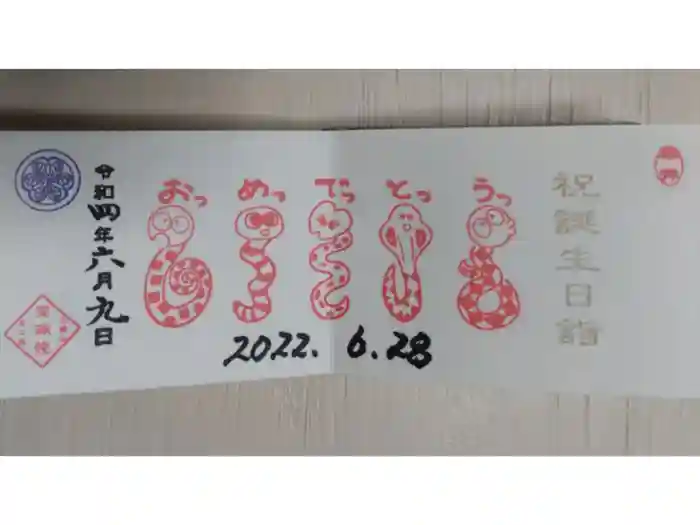 祝誕生日詣
おっ めっ でっ とっ うっ
令和四年六月九日
2022. 6.28